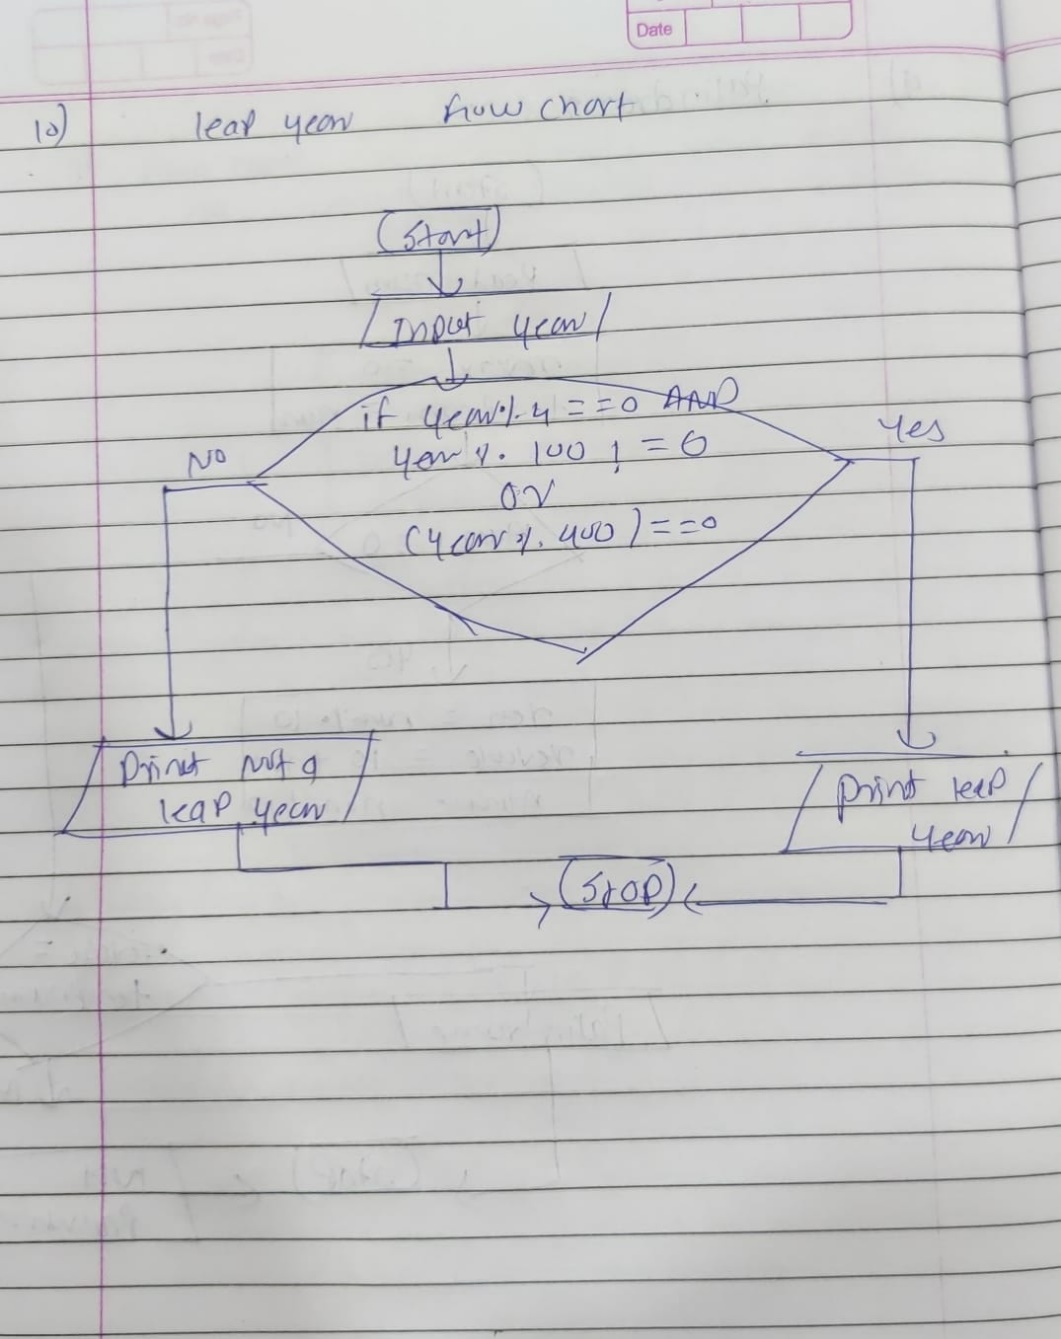 Date
10) leap year flow chart
(Start)
/ Input year /
if year % 4 == 0 AND
year % 100 != 0
or
(year % 400) == 0
No
Yes
print not a
leap year
print leap
year
(STOP)